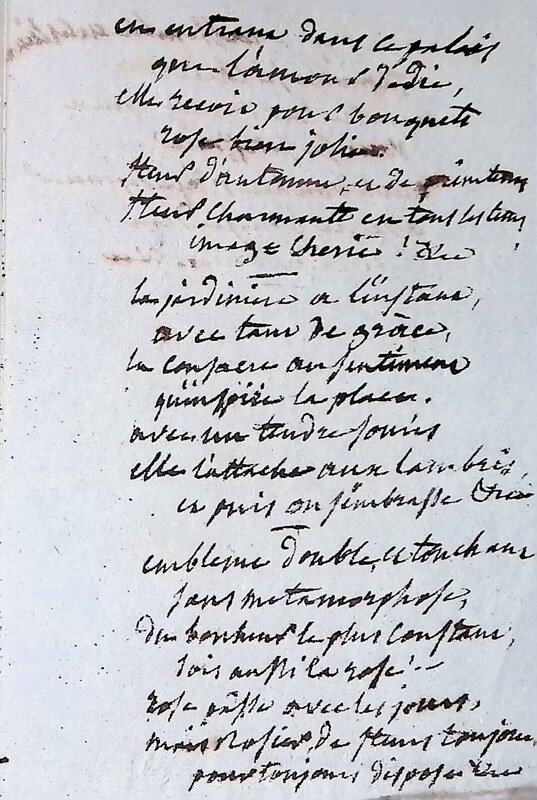 en entrant dans ce palais
que l'amour dedie,
elle reçoit pour bouquets
rose bien jolie.
fleur d'automne, et de printems
fleur charmante en tous les tems,
image cherie ! &ce
la jardiniere a l'instant,
avec tant de grâce,
la consacre au sentiment
qu'inspire la place.
avec un tendre souris
elle l'attache aux lambris,
et puis on s'embrasse &ce
embleme double, et touchant
sans metamorphose,
du bonheur le plus constant,
sois aussi la rose !
rose passe avec les jours,
mais rosier, de fleurs toujours
pour toujours dispose &ce